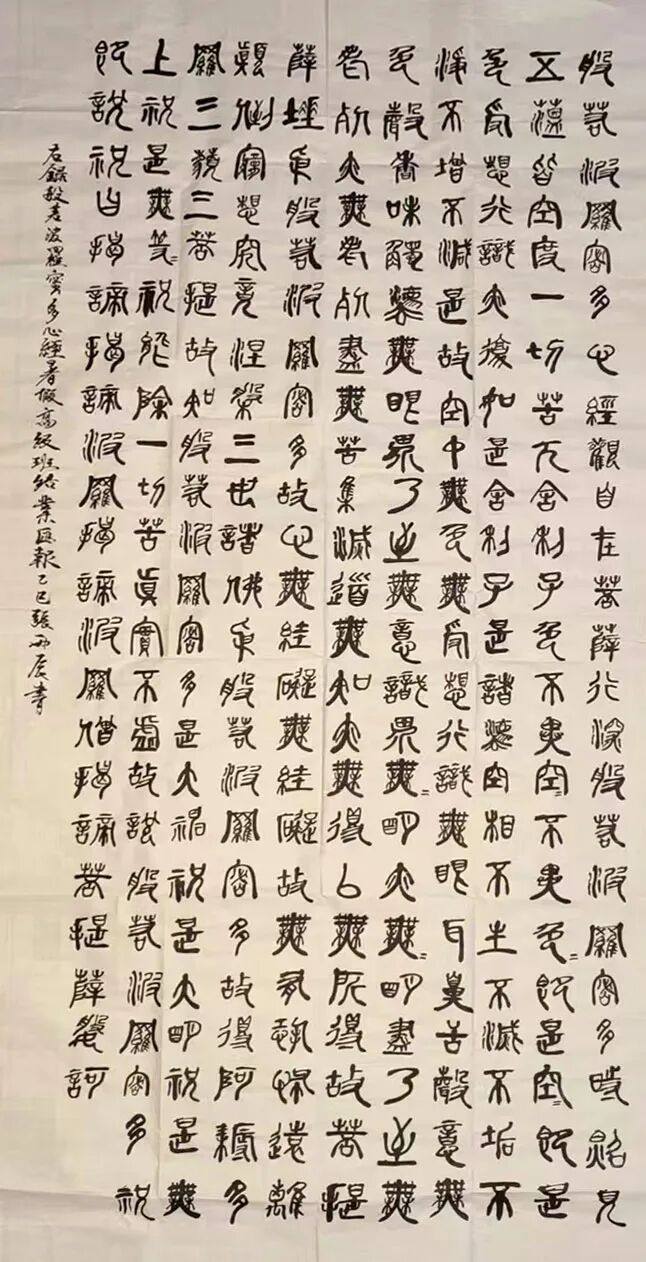 般若波羅密多心經觀自在菩薩行深般若波羅密多時照見
五蘊皆空度一切苦厄舍利子色不異空=不異色=即是空=即是
色受想行識亦復如是舍利子是諸法空相不生不滅不垢不
淨不增不減是故空中無色無受想行識無眼耳鼻舌聲意無
色聲香味觸法無眼界乃至無意識界無=明亦無=明盡乃至無無
老死亦無老死盡無苦集滅道無知亦無得以無所得故菩提
薩埵依般若波羅密多故心無罣礙無罣礙故無有恐怖遠離
顛倒夢想究竟涅槃三世諸佛依般若波羅密多故得阿耨多
羅三藐三菩提故知般若波羅密多是大神祝是大明祝是無
上祝是無等=祝能除一切苦真實不虛故說般若波羅密多祝
即說祝曰揭諦揭諦波羅揭諦波羅僧揭諦菩提薩婆訶
右錄般若波羅密多心經暑假高級班結業匯報乙巳張雨辰書